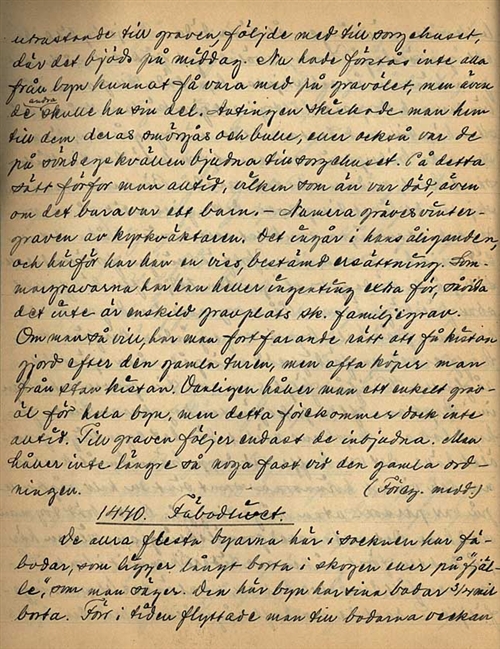 utrustande till graven, följde med till sorgehuset,
där det bjöds på middag. Nu hade förstås inte alla
från byn kunnat få vara med på gravölet, men även
de andra skulle ha sin del. Antingen skickade man hem
till dem deras smörgås och bulle, eller också var de
på söndagskvällen bjudna till sorgehuset. På detta
sätt förfor man alltid, vilken som än var död, även
om det bara var ett barn. – Numera gräves vinter-
graven av kyrkväktaren. Det ingår i hans åligganden,
och härför har han en viss, bestämd ersättning. Som-
margravarna har han heller ingenting extra för, såvida
det inte är enskild gravplats sk. familjegrav.
Om man så vill, har man fortfarande rätt att få kistan
gjord efter den gamla turen, men ofta köper man
från stan kistan. Vanligen håller man ett enkelt grav-
öl för hela byn, men detta förekommer dock inte
alltid. Till graven följer endast de inbjudna. Man
håller inte längre så noga fast vid den gamla ord-
ningen. (Föreg. medd.)
1440. Fäbodlivet.
De allra flesta byarna här i socknen har fä-
bodar, som ligger långt borta i skogen eller på "fjäl-
le", som man säger. Den här byn har sina bodar 3/4 mil
borta. Förr i tiden flyttade man till bodarna veckan